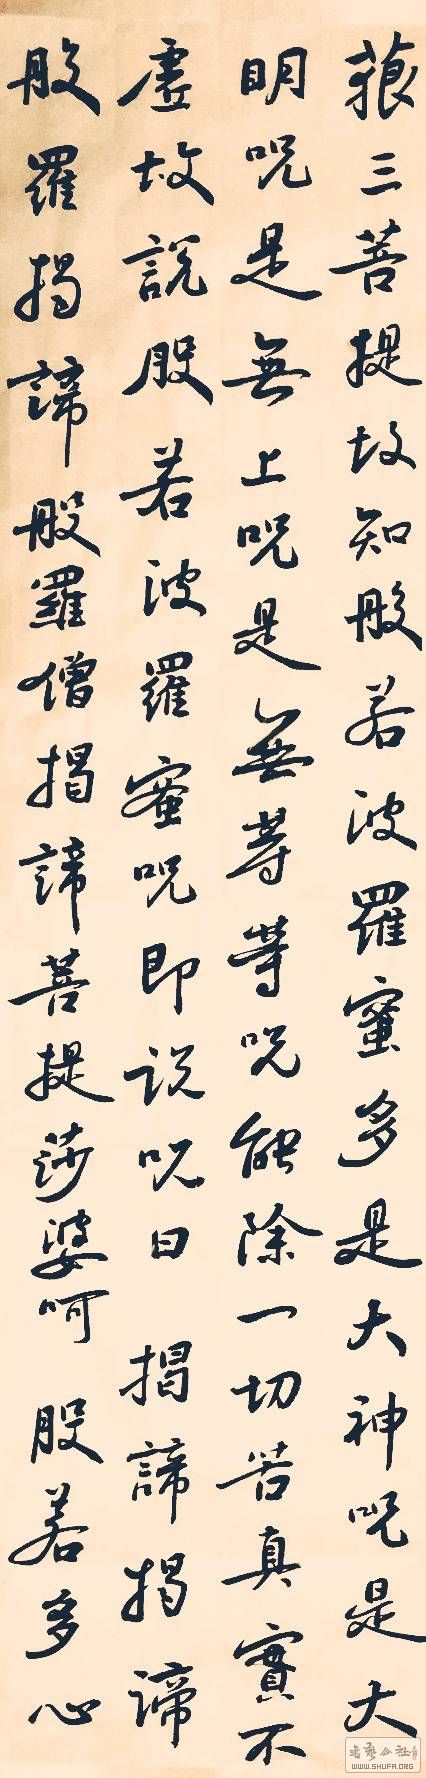 藐三菩提故知般若波羅蜜多是大神呪是大
明呪是無上呪是無等等呪能除一切苦真實不
虛故說般若波羅蜜呪即説呪曰 揭諦揭諦
般羅揭諦般羅僧揭諦菩提莎婆呵 般若多心
WWW.SHUFA.ORG